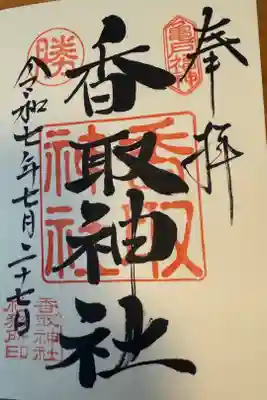 奉拝
亀戸福神
香取神社
香取
神社
勝
令和七年七月二十七日
香取神社